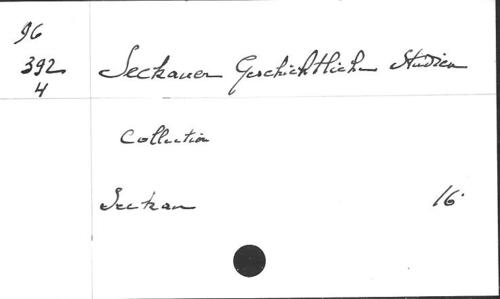 96
392
4
Seckauer Geschichtliche Studien
Collection
Seckau
16°